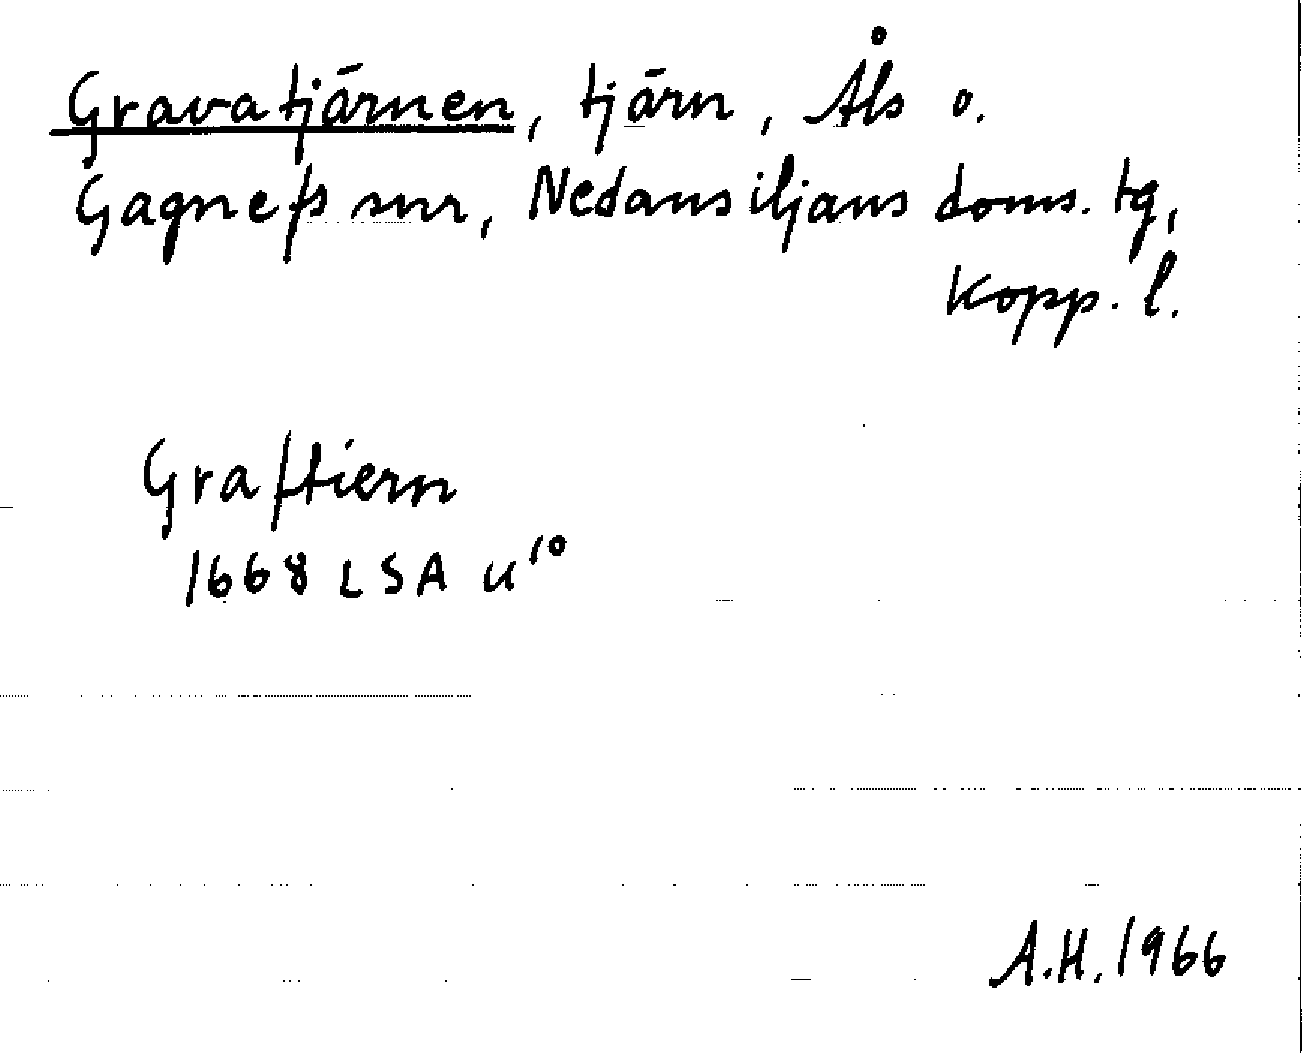 Gravatjärnen, tjärn, Åls o.
Gagnefs snr, Nedansiljans doms. tg,
Kopp. l.
Graftiern
1668 LSA u¹⁰
A.H. 1966